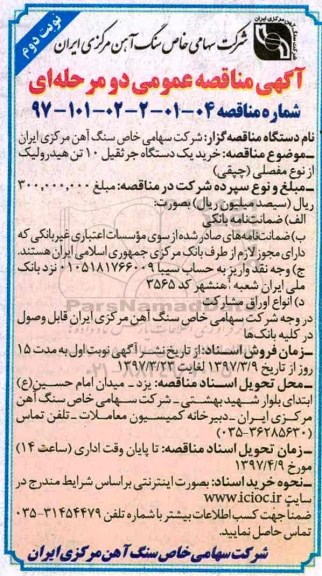 نوبت دوم
شرکت سهامی خاص سنگ آهن مرکزی ایران
آگهی مناقصه عمومی دو مرحله‌ای
شماره مناقصه ۰۴-۰۱-۲-۰۲-۱۰۱-۹۷
نام دستگاه مناقصه‌گزار: شرکت سهامی خاص سنگ آهن مرکزی ایران
ـ موضوع مناقصه: خرید یک دستگاه جرثقیل ۱۰ تن هیدرولیک
از نوع مفصلی (چپقی)
ـ مبلغ و نوع سپرده شرکت در مناقصه: مبلغ ۳۰۰,۰۰۰,۰۰۰
ریال (سیصد میلیون ریال) بصورت:
الف) ضمانت‌نامه بانکی
ب) ضمانت‌نامه‌های صادر شده از سوی مؤسسات اعتباری غیربانکی که
دارای مجوز لازم از طرف بانک مرکزی جمهوری اسلامی ایران هستند.
ج) وجه نقد واریز به حساب سیبا ۰۱۰۵۱۸۱۷۶۶۰۰۹ نزد بانک
ملی ایران شعبه آهنشهر کد ۳۵۶۵
د) انواع اوراق مشارکت
در وجه شرکت سهامی خاص سنگ آهن مرکزی ایران قابل وصول
در کلیه بانک‌ها
ـ زمان فروش اسناد: از تاریخ نشر آگهی نوبت اول به مدت ۱۵
روز از تاریخ ۱۳۹۷/۳/۹ لغایت ۱۳۹۷/۳/۲۳
ـ محل تحویل اسناد مناقصه: یزد ـ میدان امام حسین(ع)
ابتدای بلوار شهید بهشتی ـ شرکت سهامی خاص سنگ آهن
مرکزی ایران ـ دبیرخانه کمیسیون معاملات ـ تلفن تماس
(۰۳۵-۳۶۲۸۵۶۳۰)
ـ زمان تحویل اسناد مناقصه: تا پایان وقت اداری (ساعت ۱۴)
مورخ ۱۳۹۷/۴/۹
ـ نحوه خرید اسناد: بصورت اینترنتی براساس شرایط مندرج در
سایت www.icioc.ir
ضمناً جهت کسب اطلاعات بیشتر با شماره تلفن ۳۱۴۵۴۴۷۹-۰۳۵
تماس حاصل نمایید.
شرکت سهامی خاص سنگ آهن مرکزی ایران